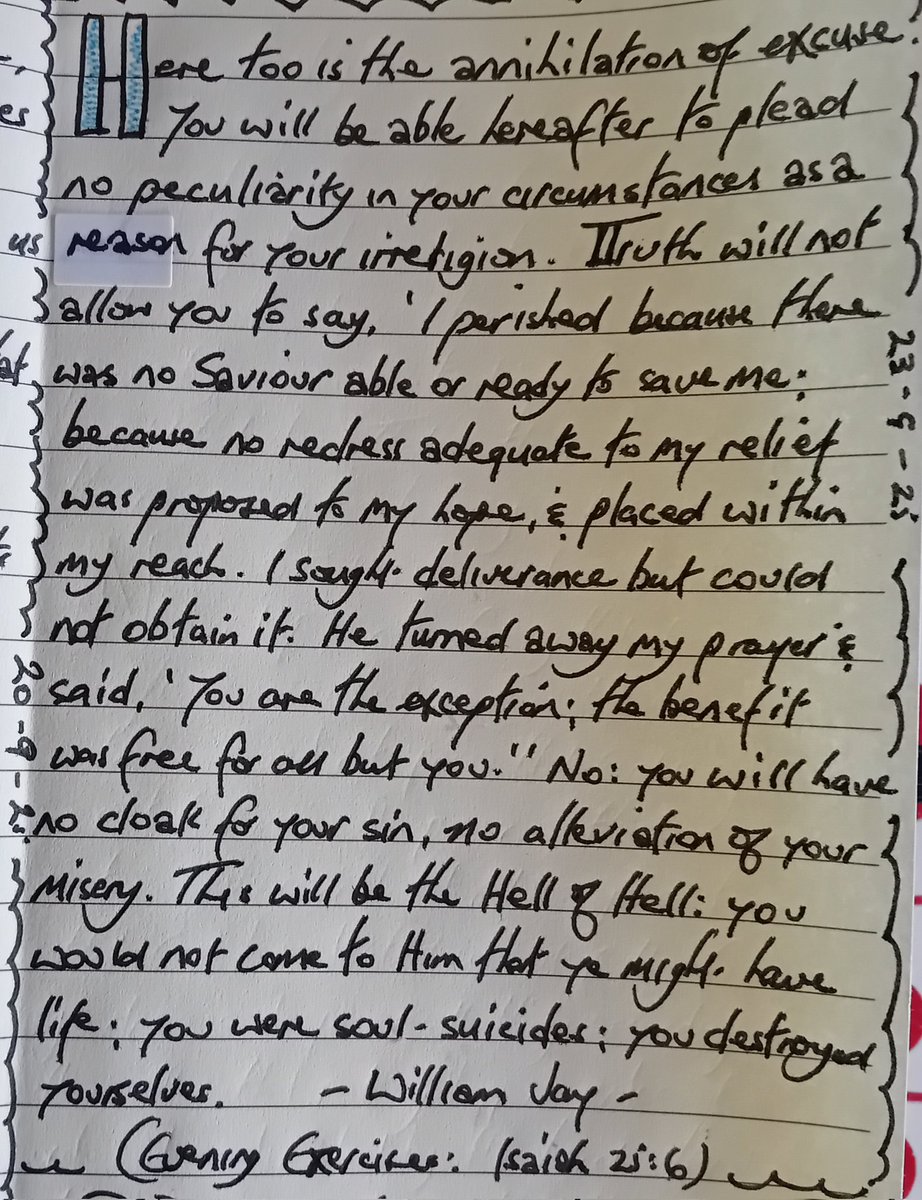 Here too is the annihilation of excuse.
You will be able hereafter to plead
no peculiarity in your circumstances as a
reason for your irreligion. Truth will not
allow you to say, 'I perished because there
was no Saviour able or ready to save me;
because no redress adequate to my relief
was proposed to my hope, & placed within
my reach. I sought deliverance but could
not obtain it. He turned away my prayer &
said, 'You are the exception; the benefit
was free for all but you." No: you will have
no cloak for your sin, no alleviation of your
misery. This will be the Hell of Hell: you
would not come to Him that ye might have
life; you were soul-suicides; you destroyed
yourselves. - William Jay -
(Evening Exercises: Isaiah 25:6)
23-9-25
es
us
20-9-2